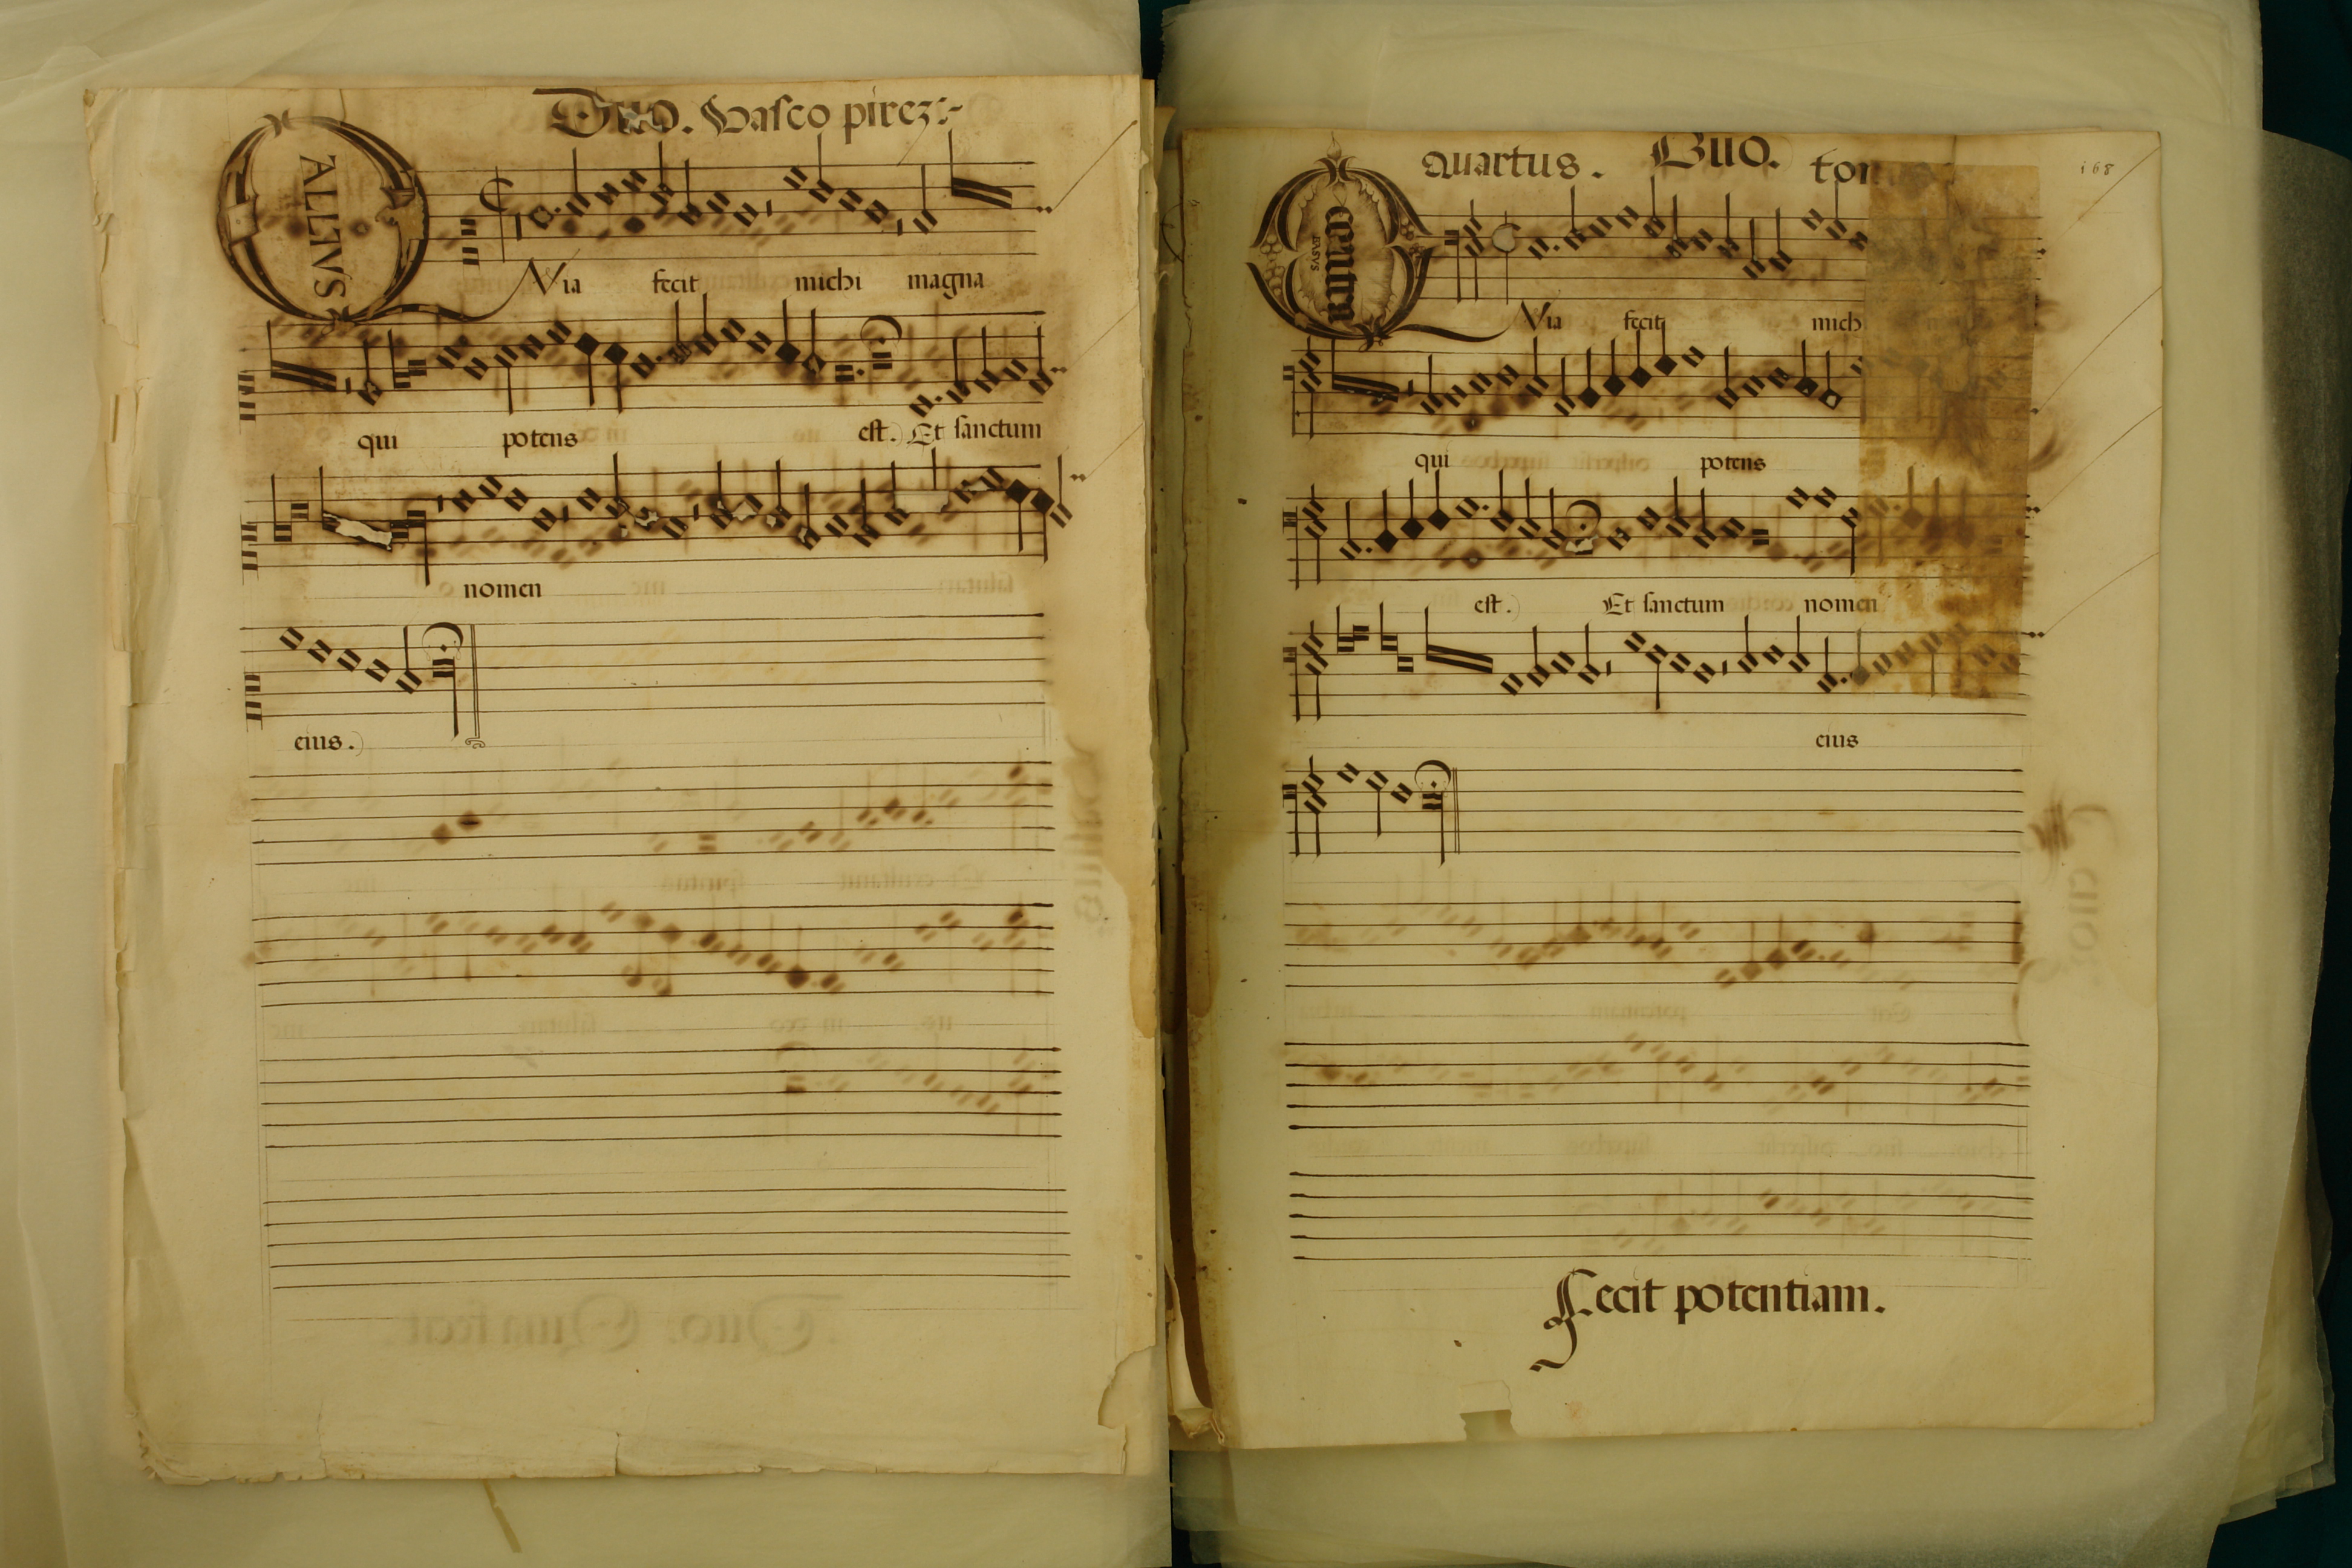 Duo. Vasco pirez:~
ALTVS
QVia fecit michi magna
qui potens est. Et sanctum
nomen
eius.
Quartus. Duo. ton
168
BASVS
QVia fecit mich
qui potens
est. Et sanctum nomen
eius
Fecit potentiam.